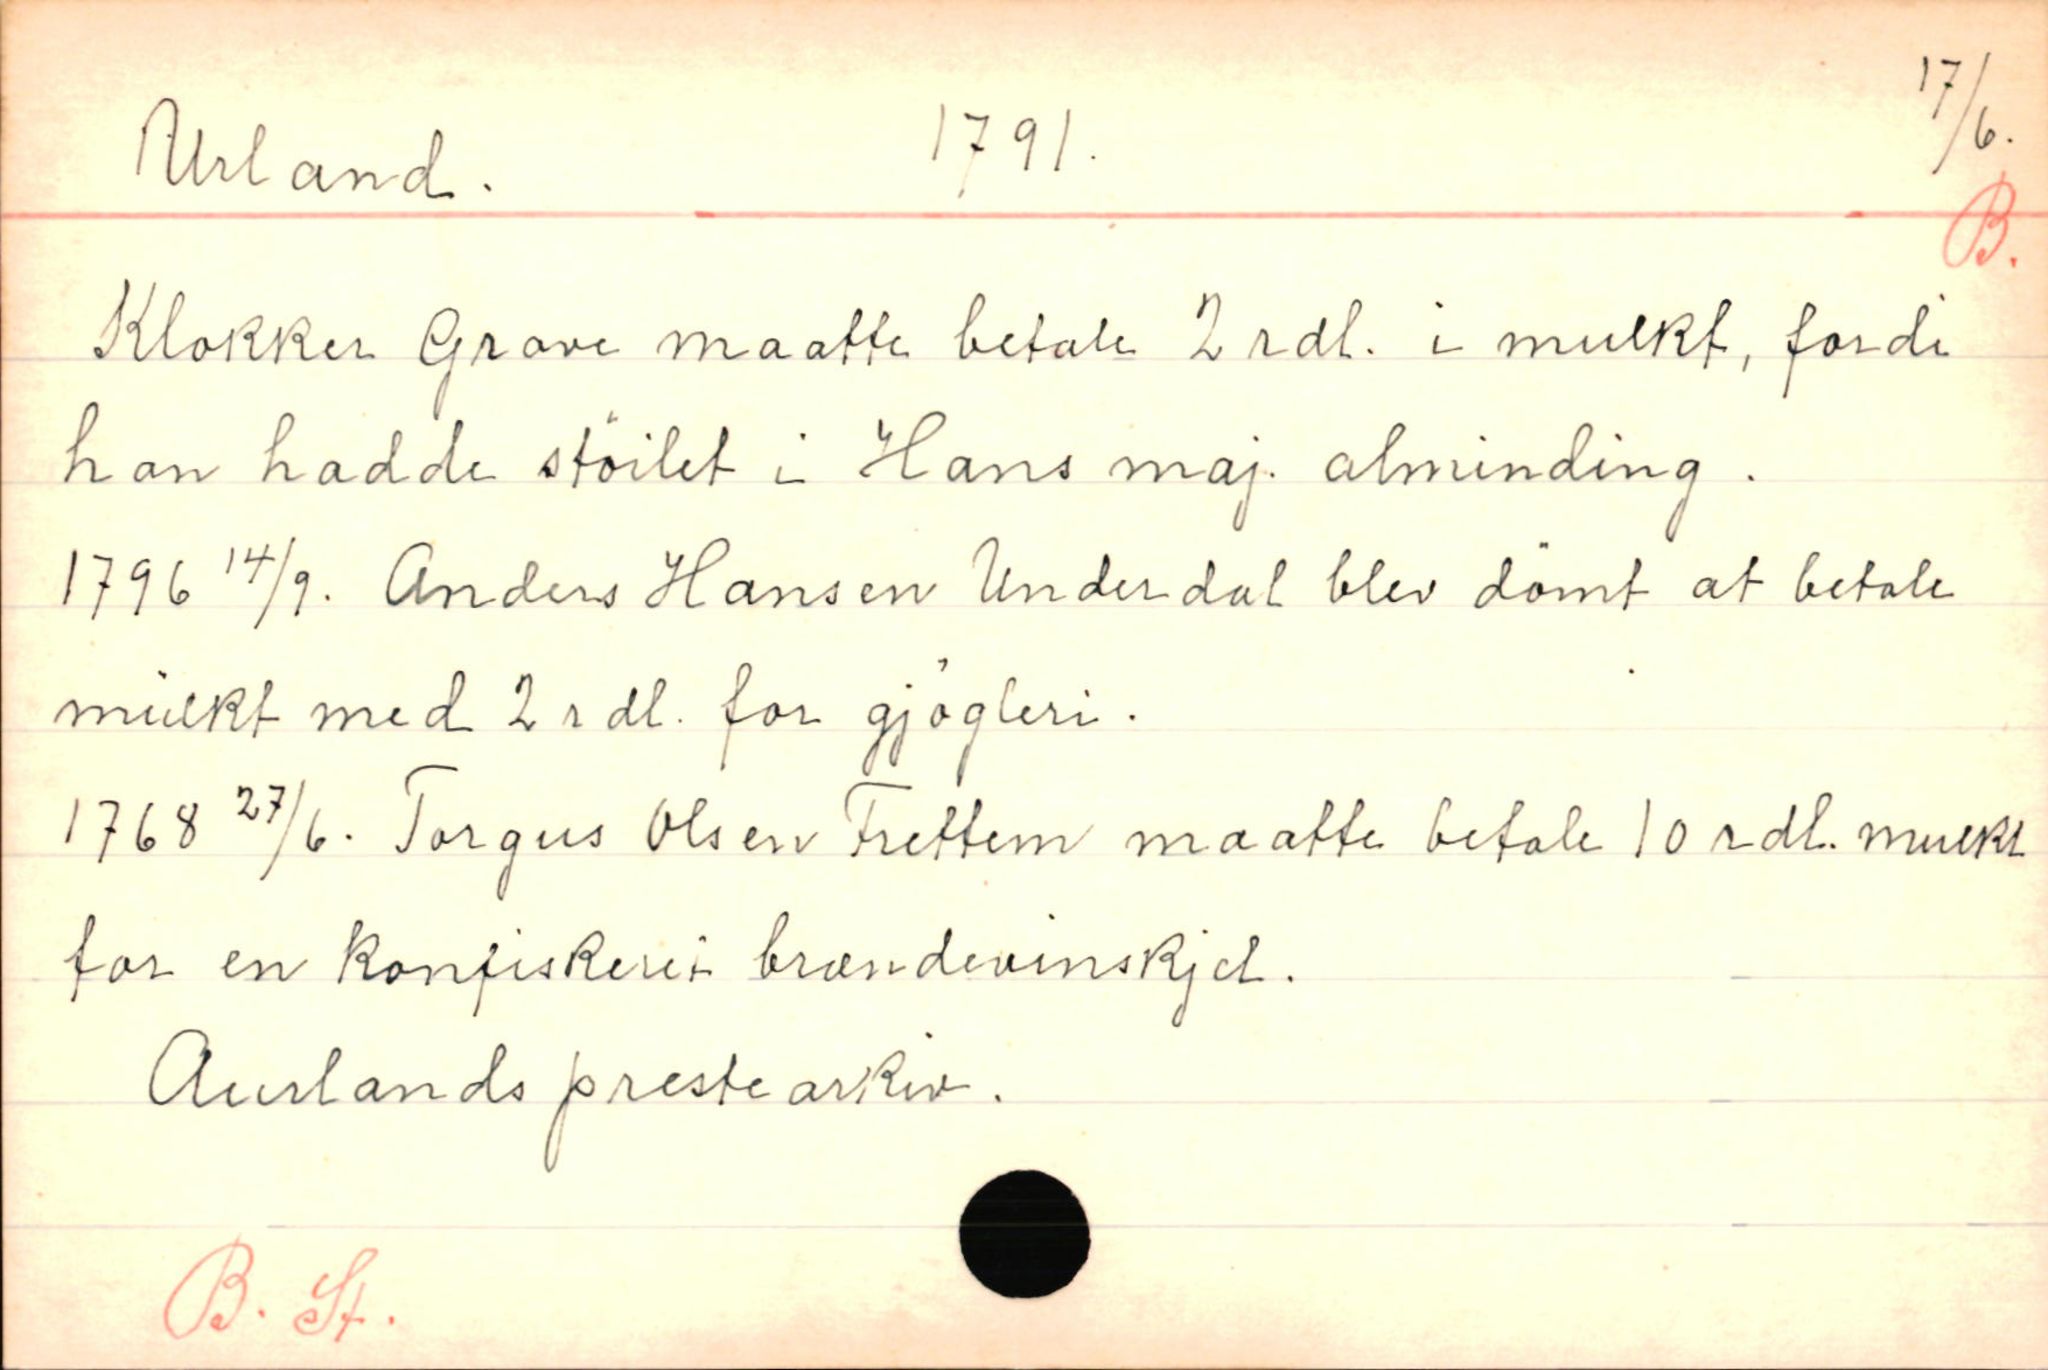 Urland. 1791. 17/6.
B.
Klokker Grove maatte betale 2 rdl. i mulkt, fordi
han hadde stöilet i Hans maj. alminding.
1796 14/9. Anders Hansen Underdal blev dömt at betale
mulkt med 2 rdl. for gjögleri.
1768 27/6. Torgus Olsen Frettem maatte betale 10 rdl. mulkt
for en konfiskert brændevinskjel.
Aurlands prestearkiv.
B. St.